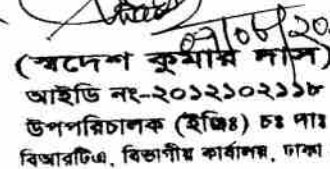 ০৭/০৮/২০
(স্বদেশ কুমার দাস)
আইডি নং-২০১২১০২১১৮
উপপরিচালক (ইঞ্জিঃ) চঃ দাঃ
বিআরটিএ, বিভাগীয় কার্যালয়, ঢাকা